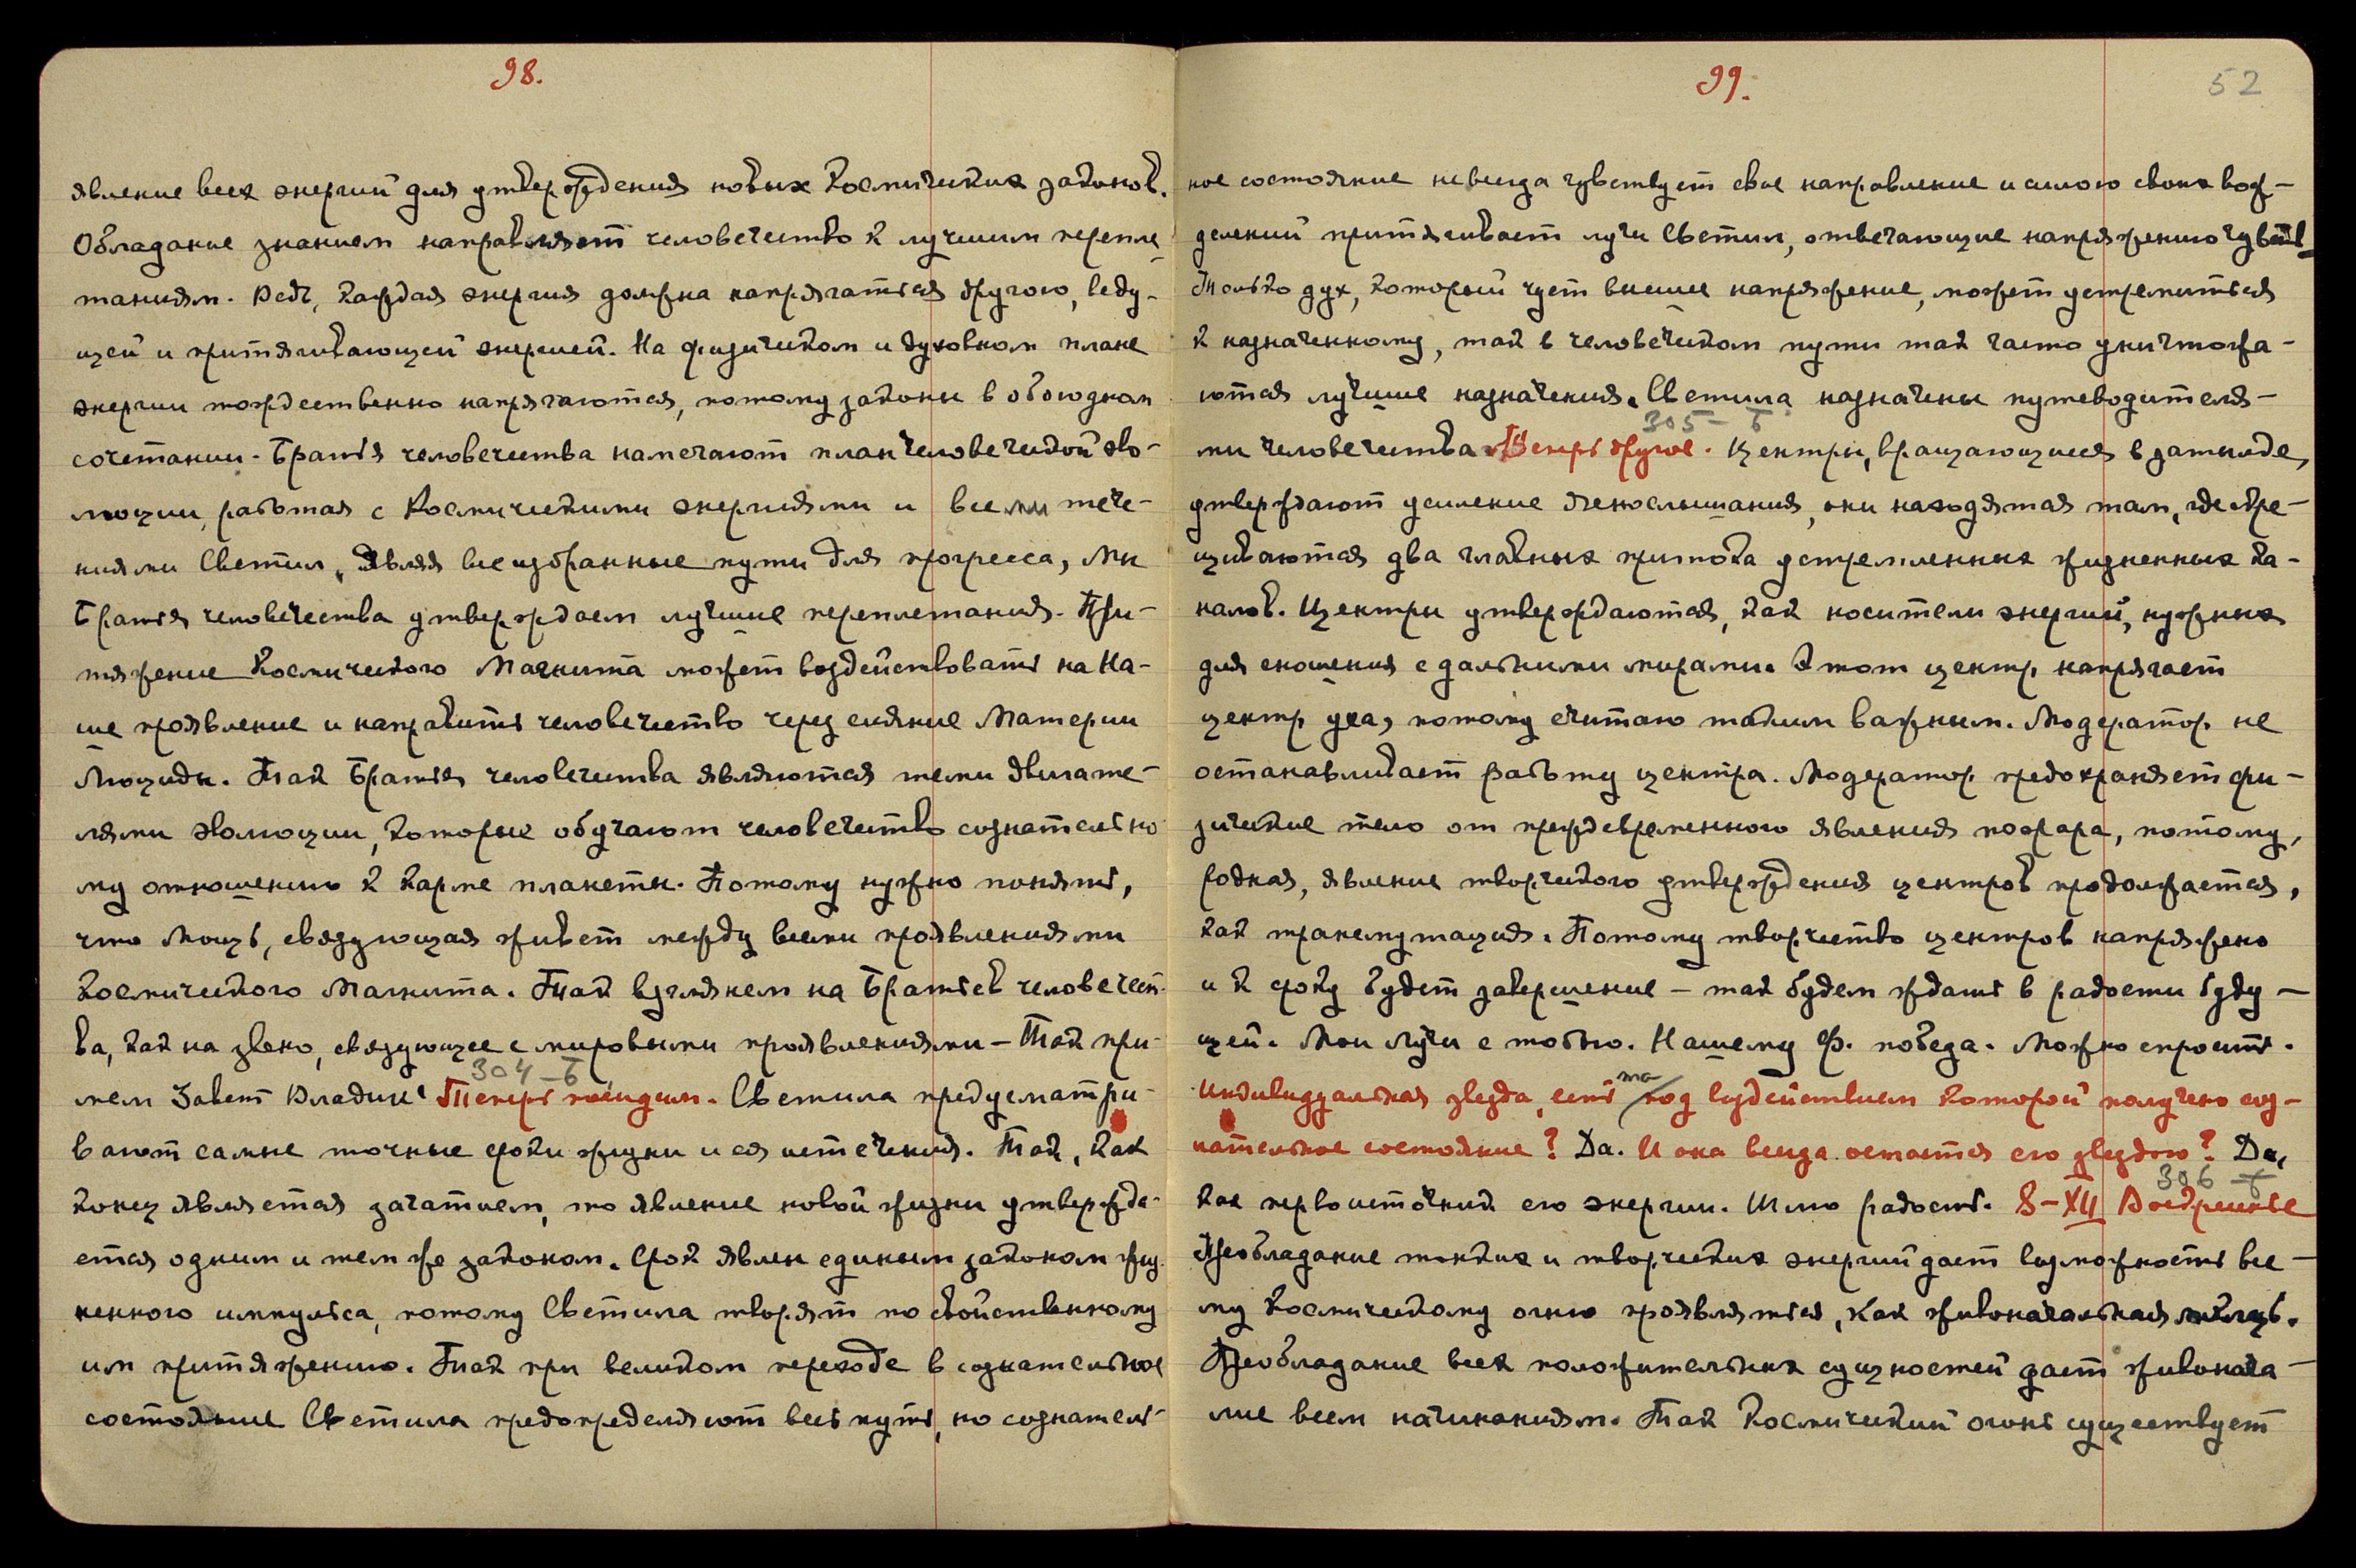 98.
явление всех энергий для утверждения новых Космических законов.
Обладание знанием направляет человечество к лучшим перепле-
таниям. Ведь, каждая энергия должна напрягаться другою, веду-
щей и притягивающей энергией. На физическом и духовном плане
энергии тождественно напрягаются, потому законы в обоюдном
сочетании. Братья человечества намечают план человеческой эво-
люции, работая с Космическими энергиями и всеми тече-
ниями Светил. Являя все избранные пути для прогресса, Мы
Братья человечества утверждаем лучшие переплетания. При-
тяжение Космического Магнита может воздействовать на На-
ше проявление и направить человечество через сияние Материи
Люциды. Так Братья человечества являются теми двигате-
лями эволюции, которые обучают человечество сознательно-
му отношению к карме планеты. Потому нужно понять,
что Мощь, связующая живет между всеми проявлениями
Космического Магнита. Так взглянем на Братьев человечест-
ва, как на звено, связующее с мировыми проявлениями – Так при-
304 – б
мем Завет Владык! Теперь пойидем. Светила предусматри-
вают самые точные сроки жизни и ея истечения. Так, как
конец является зачатием, то явление новой жизни утвержда-
ется одним и тем же законом. Срок явлен единым законом жиз-
ненного импульса, потому Светила творят по свойственному
им притяжению. Так при великом переходе в сознательное
состояние Светила предопределяют весь путь, но сознатель-
99.
52
ное состояние невсегда чувствует свое направление и силою своих вож-
делений притягивает лучи Светил, отвечающие напряжению чувств.
Только дух, который чует высшее напряжение, может устремиться
к назначенному, так в человеческом пути так часто уничтожа-
ются лучшие назначения. Светила назначены путеводителя-
305 – б
ми человечества. Теперь другое. Центры, вращающиеся в затылке,
утверждают усиление яснослышания, они находятся там, где скре-
щиваются два главных притока устремленных жизненных ка-
налов. Центры утверждаются, как носители энергий, нужных
для сношения с дальними мирами. Этот центр напрягает
центр уха, потому считаю таким важным. Модератор не
останавливает работу центра. Модератор предохраняет фи-
зическое тело от преждевременного явления пожара, потому,
родная, явление творческого утверждения центров продолжается,
как трансмутация. Потому творчество центров напряжено
и к сроку будет завершение – так будем ждать в радости буду-
щей. Мои Лучи с тобою. Нашему Ф. победа. Можно спросить.
та
Индивидуальная звезда, есть под воздействием которой получено соз-
нательное состояние? Да. И она всегда остается его звездою? Да,
306 – б
как первоисточник его энергии. Шлю радость. 8–XII Воскресенье
Преобладание тонких и творческих энергий дает возможность все-
му Космическому огню проявляться, как живоначальная мощь.
Преобладание всех положительных сущностей дает живонача-
лие всем начинаниям. Так Космический огонь существует